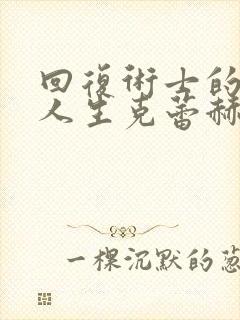 回復術士的
人生克蕾赫
一棵沉默的葱